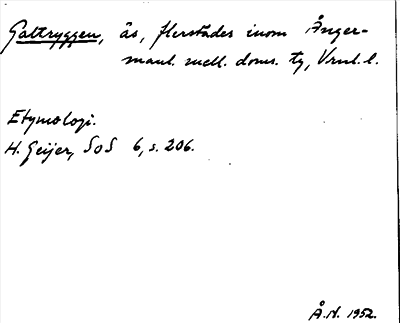 Galtryggen, ås, flerstädes inom Ånger-
manl. mell. doms. tg, Vrnl. l.
Etymologi.
H. Geijer, SoS 6, s. 206.
Å.N. 1952.